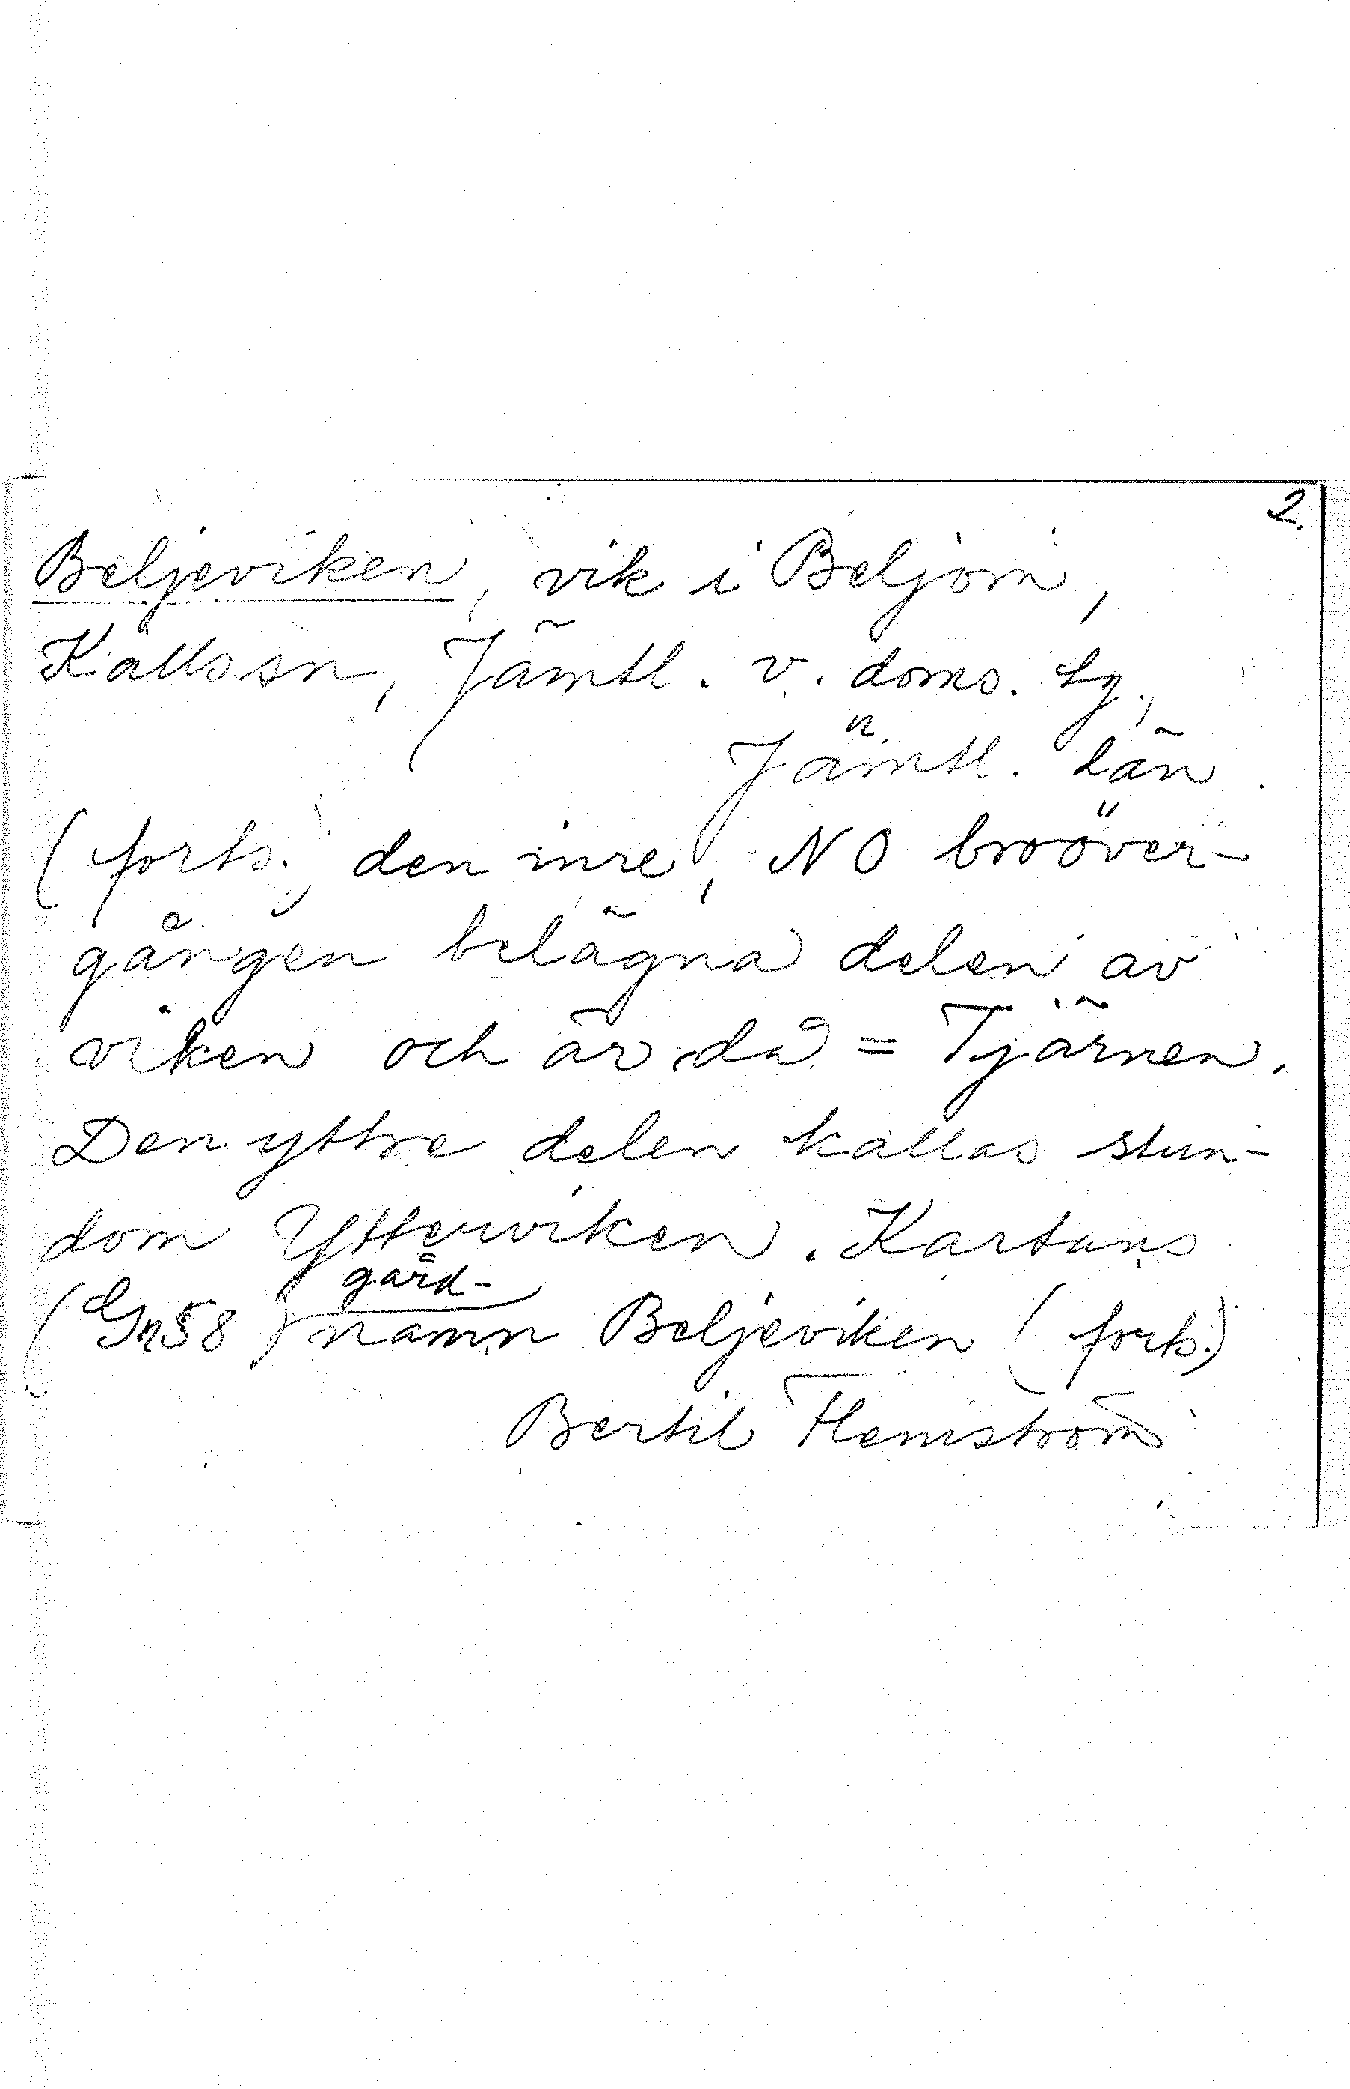 2.
Beljeviken, vik i Beljom,
Kalls sn, Jämtl. v. doms. lg,
Jämtl. län
(forts.) den inre, NO broöver-
gången belägna delen av
viken och är då = Tjärnen.
Den yttre delen kallas stun-
dom Ytterviken. Kartans
gård-
(Gn58) namn Beljeviken (forts.)
Bertil Flemström